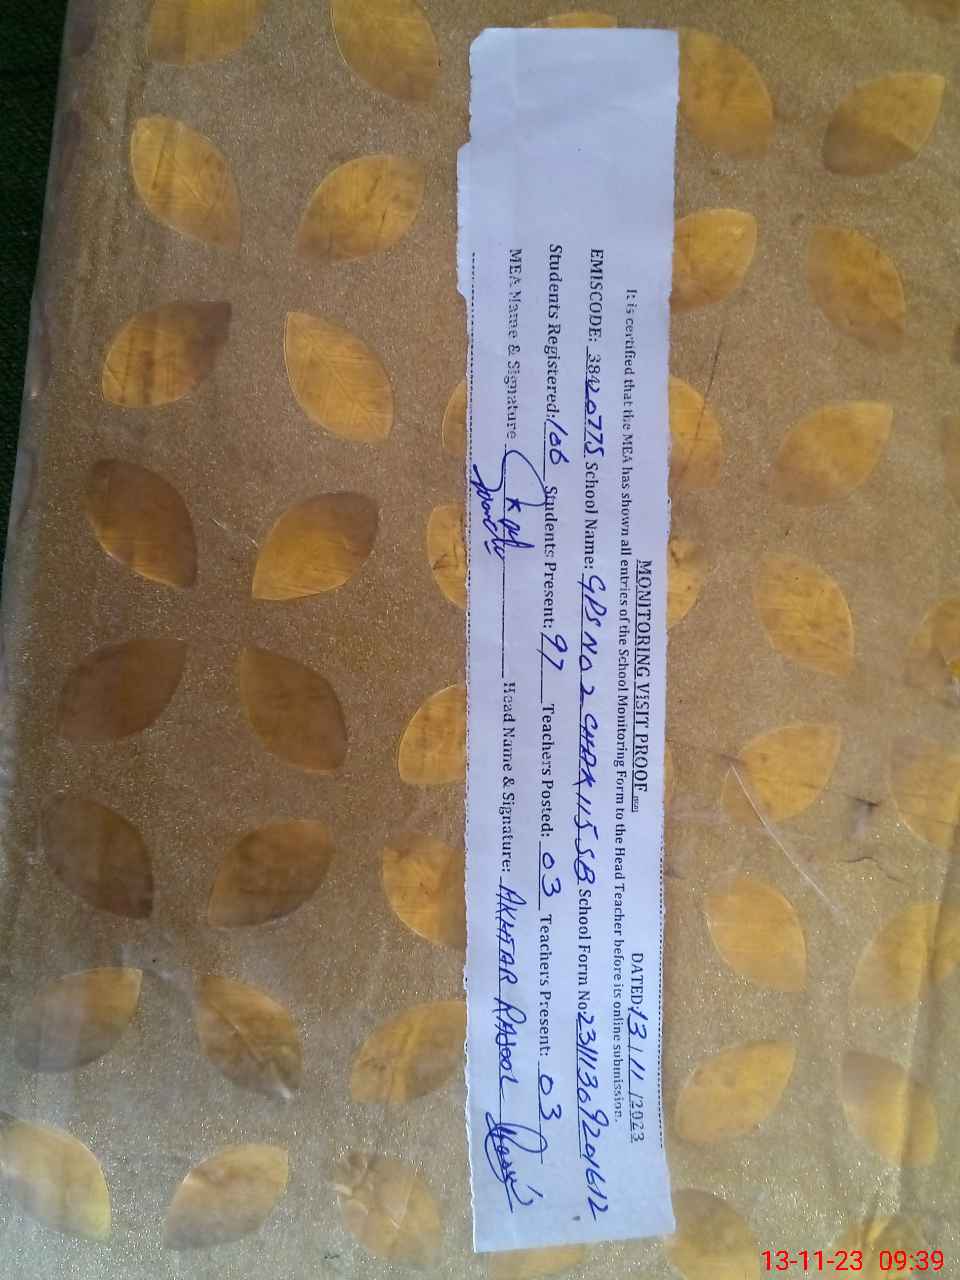 MONITORING VISIT PROOF DATED: 13/11/2023
It is certified that the MEA has shown all entries of the School Monitoring Form to the Head Teacher before its online submission.
EMISCODE: 38420775 School Name: GPS NO 2 CHAK 115 SB School Form No 23111309201612
Students Registered: 106 Students Present: 97 Teachers Posted: 03 Teachers Present: 03
MEA Name & Signature Head Name & Signature: AKHTAR RASOOL
13-11-23 09:39